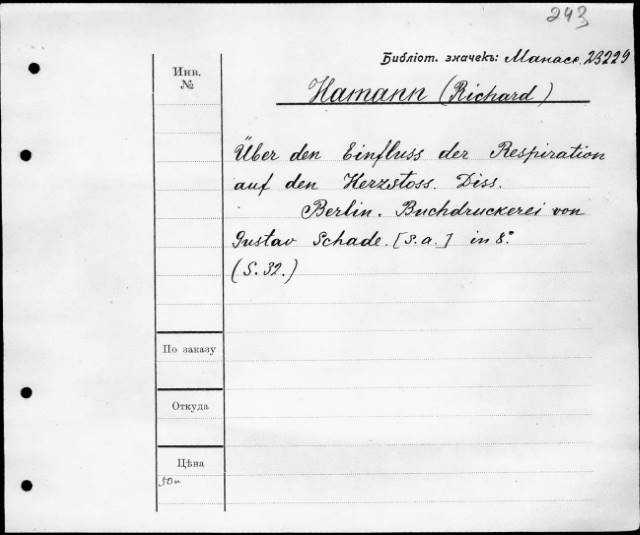 243
Библіот. значекъ: Манасс. 23229
Инв.
№
Hamann (Richard)
Über den Einfluss der Respiration
auf den Herzstoss. Diss.
Berlin. Buchdruckerei von
Gustav Schade. [S. a.] in 8°.
(S. 32.)
По заказу
Откуда
Цѣна
50к